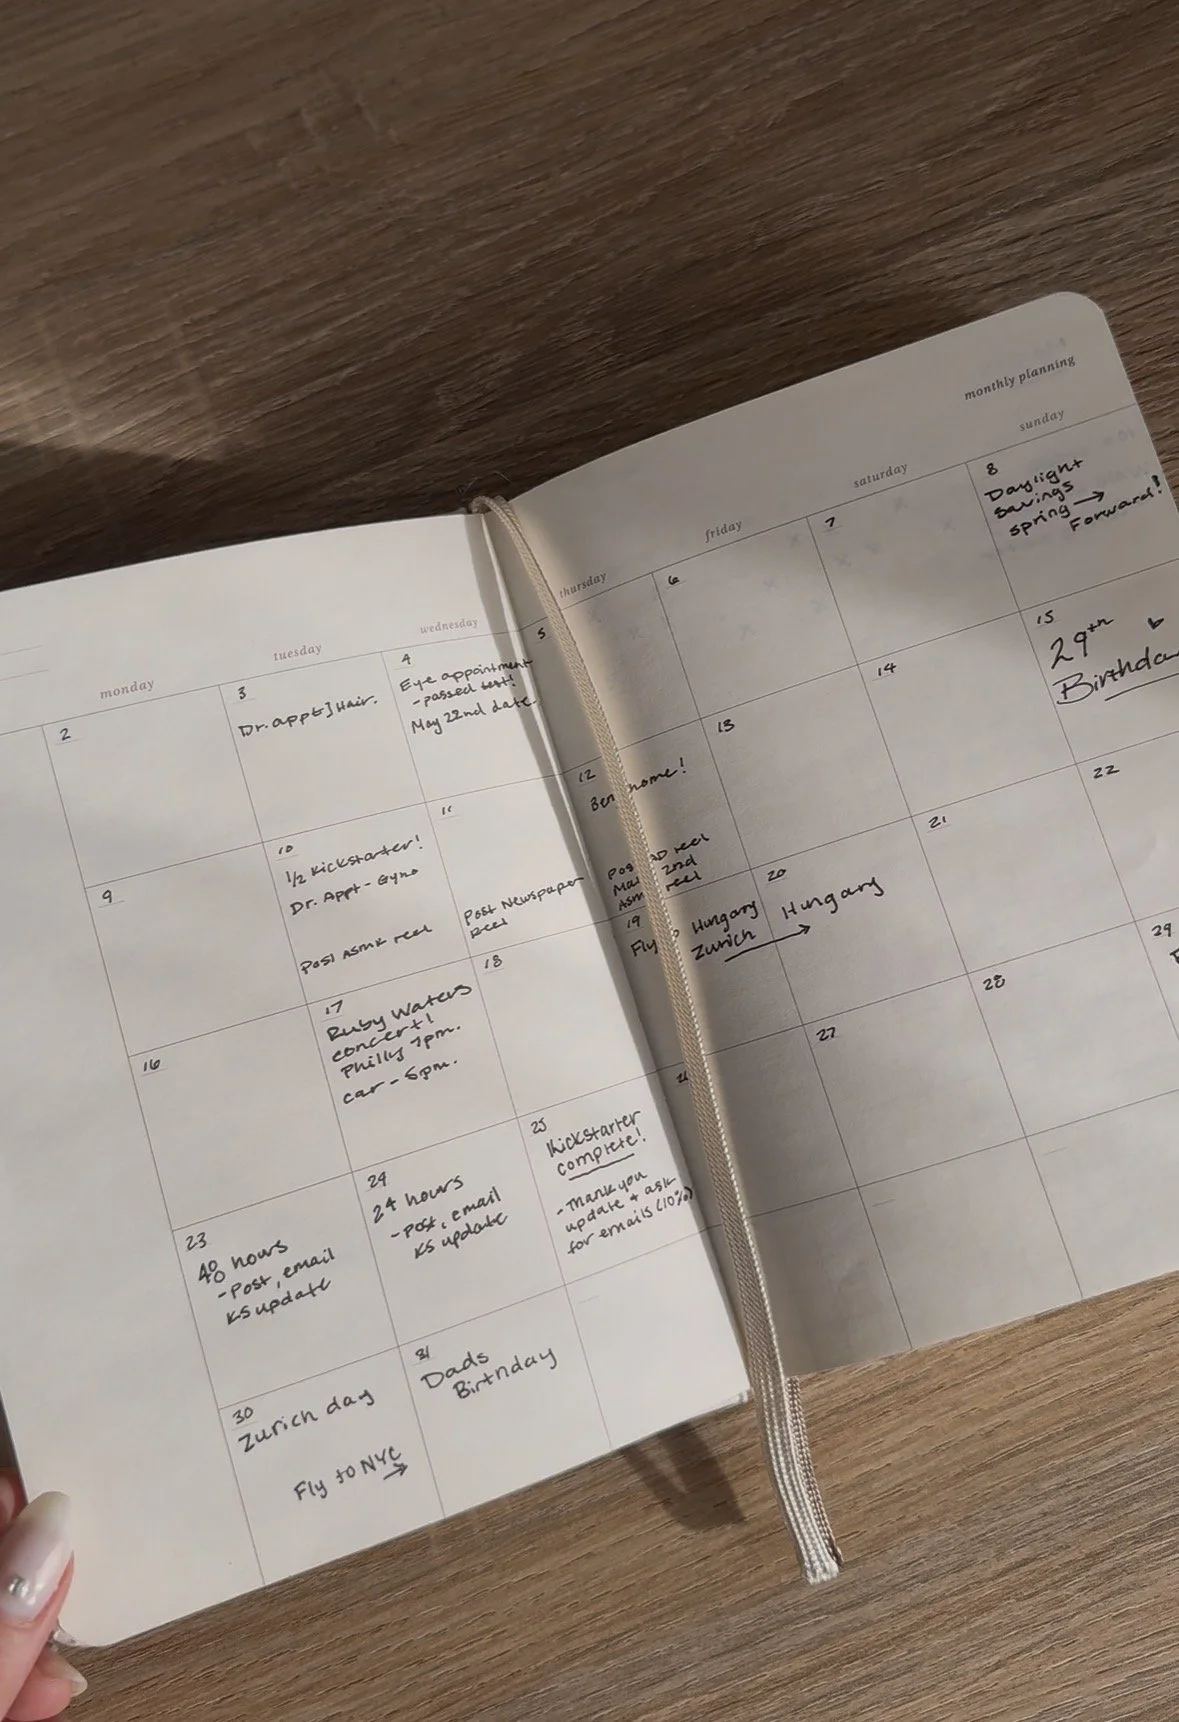 monthly planning
monday
tuesday
wednesday
thursday
friday
saturday
sunday
2
3
Dr. appt] Hair.
4
Eye appointment
- passed test!
May 22nd date.
5
6
7
8
Daylight
savings
spring →
Forward!
9
10
1/2 Kickstarter!
Dr. Appt - Gyno
Post ASMR reel
11
Post Newspaper
Reel
12
Ben home!
Pos AD reel
2nd
reel
13
14
15
29th
Birthda
16
17
Ruby Waters
concert!
Philly 7pm.
car - 5pm.
18
19
Fly Hungary
Zurich →
20
Hungary
21
22
23
48 hours
- Post, email
KS update
24
24 hours
- Post, email
KS update
25
Kickstarter
complete!
- Thank you
update + ask
for emails (10%)
27
28
29
30
Zurich day
Fly to NYC
→
31
Dads
Birthday